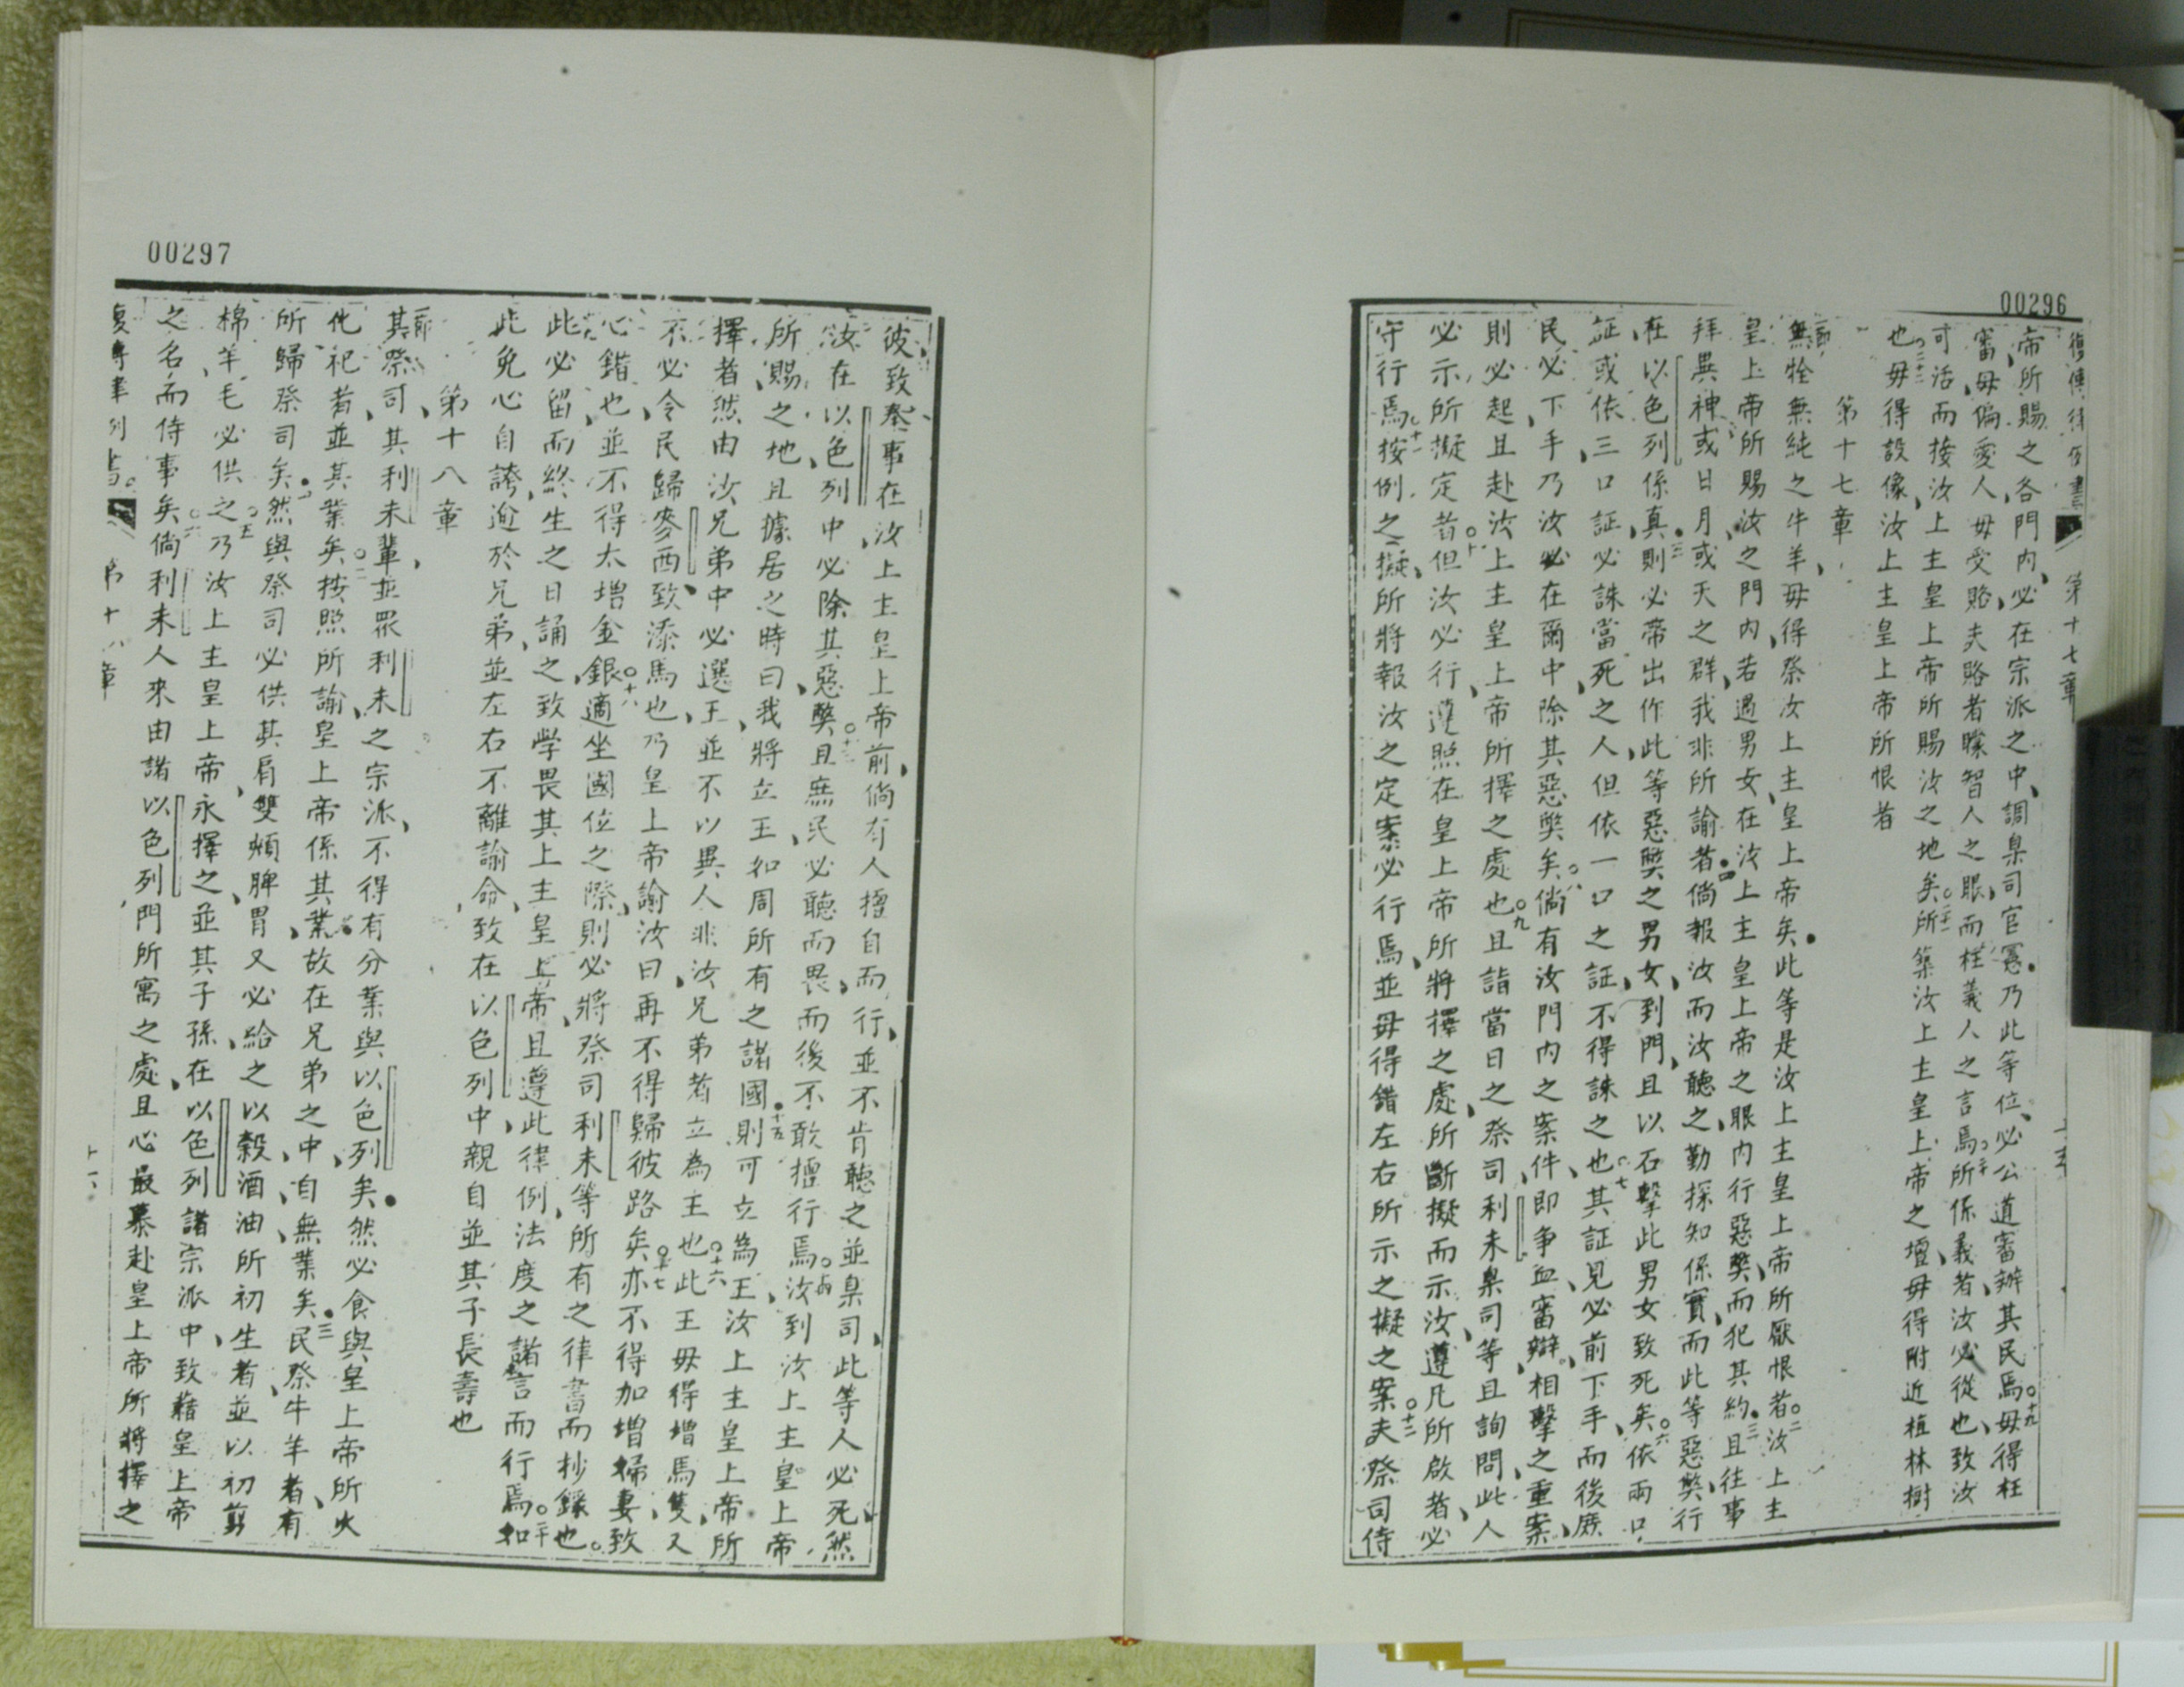 00296
復傳律例書 第十七章
帝所賜之各門內必在宗派之中調臬司官憲乃此等位必公道審辦其民焉○十九毋得枉
審毋偏愛人毋受賂夫賂者矇智人之眼而枉義人之言焉○二十所係義者汝必從也致汝
可活而接汝上主皇上帝所賜汝之地矣○二十一所築汝上主皇上帝之壇毋得附近植林樹
也○二十二毋得設像汝上主皇上帝所恨者
第十七章
一節無牷無純之牛羊毋得祭汝上主皇上帝矣此等是汝上主皇上帝所厭恨者○二汝上主
皇上帝所賜汝之門內若遇男女在汝上主皇上帝之眼內行惡獘而犯其約三且往事
拜異神或日月或天之群我非所諭者四倘報汝而汝聽之勤探知係實而此等惡獘行
在以色列係真則必帶出作此等惡獘之男女到門且以石擊此男女致死矣○六依兩口
証或依三口証必誅當死之人但依一口之証不得誅之也○七其証見必前下手而後庶
民必下手乃汝必在爾中除其惡獘矣○八倘有汝門內之案件即爭血審辯相擊之重案
則必起且赴汝上主皇上帝所擇之處也○九且詣當日之祭司利未臬司等且詢問此人
必示所擬定者○十但汝必行遵照在皇上帝所將擇之處所斷擬而示汝遵凡所啟者必
守行焉○十一按例之擬所將報汝之定案必行焉並毋得錯左右所示之擬之案○十二夫祭司侍
00297
彼致奉事在汝上主皇上帝前倘有人擅自而行並不肯聽之並臬司此等人必死然
汝在以色列中必除其惡獘○十三且庶民必聽而畏而後不敢擅行焉○十四汝到汝上主皇上帝
所賜之地且據居之時曰我將立王如周所有之諸國十五則可立為王汝上主皇上帝所
擇者然由汝兄弟中必選王並不以異人非汝兄弟者立為主也○十六此王毋得增馬隻又
不必令民歸麥西致添馬也乃皇上帝諭汝曰再不得歸彼路矣○十七亦不得加增婦妻致
心錯也並不得太增金銀○十八適坐國位之際則必將祭司利未等所有之律書而抄錄也
此必留而終生之日誦之致學畏其上主皇上帝且遵此律例法度之諸言而行焉○二十如
此免心自誇逾於兄弟並左右不離諭命致在以色列中親自並其子長壽也
第十八章
一節其祭司其利未輩並眾利未之宗派不得有分業與以色列矣然必食與皇上帝所火
化祀者並其業矣○二按照所諭皇上帝係其業故在兄弟之中自無業矣三民祭牛羊者有
所歸祭司矣四然與祭司必供其肩雙頰脾胃又必給之以穀酒油所初生者並以初剪
棉羊毛必供之○五乃汝上主皇上帝永擇之並其子孫在以色列諸宗派中致藉皇上帝
之名而侍事矣○六倘利未人來由諸以色列門所寓之處且心最慕赴皇上帝所將擇之
復傳律例書 第十八章